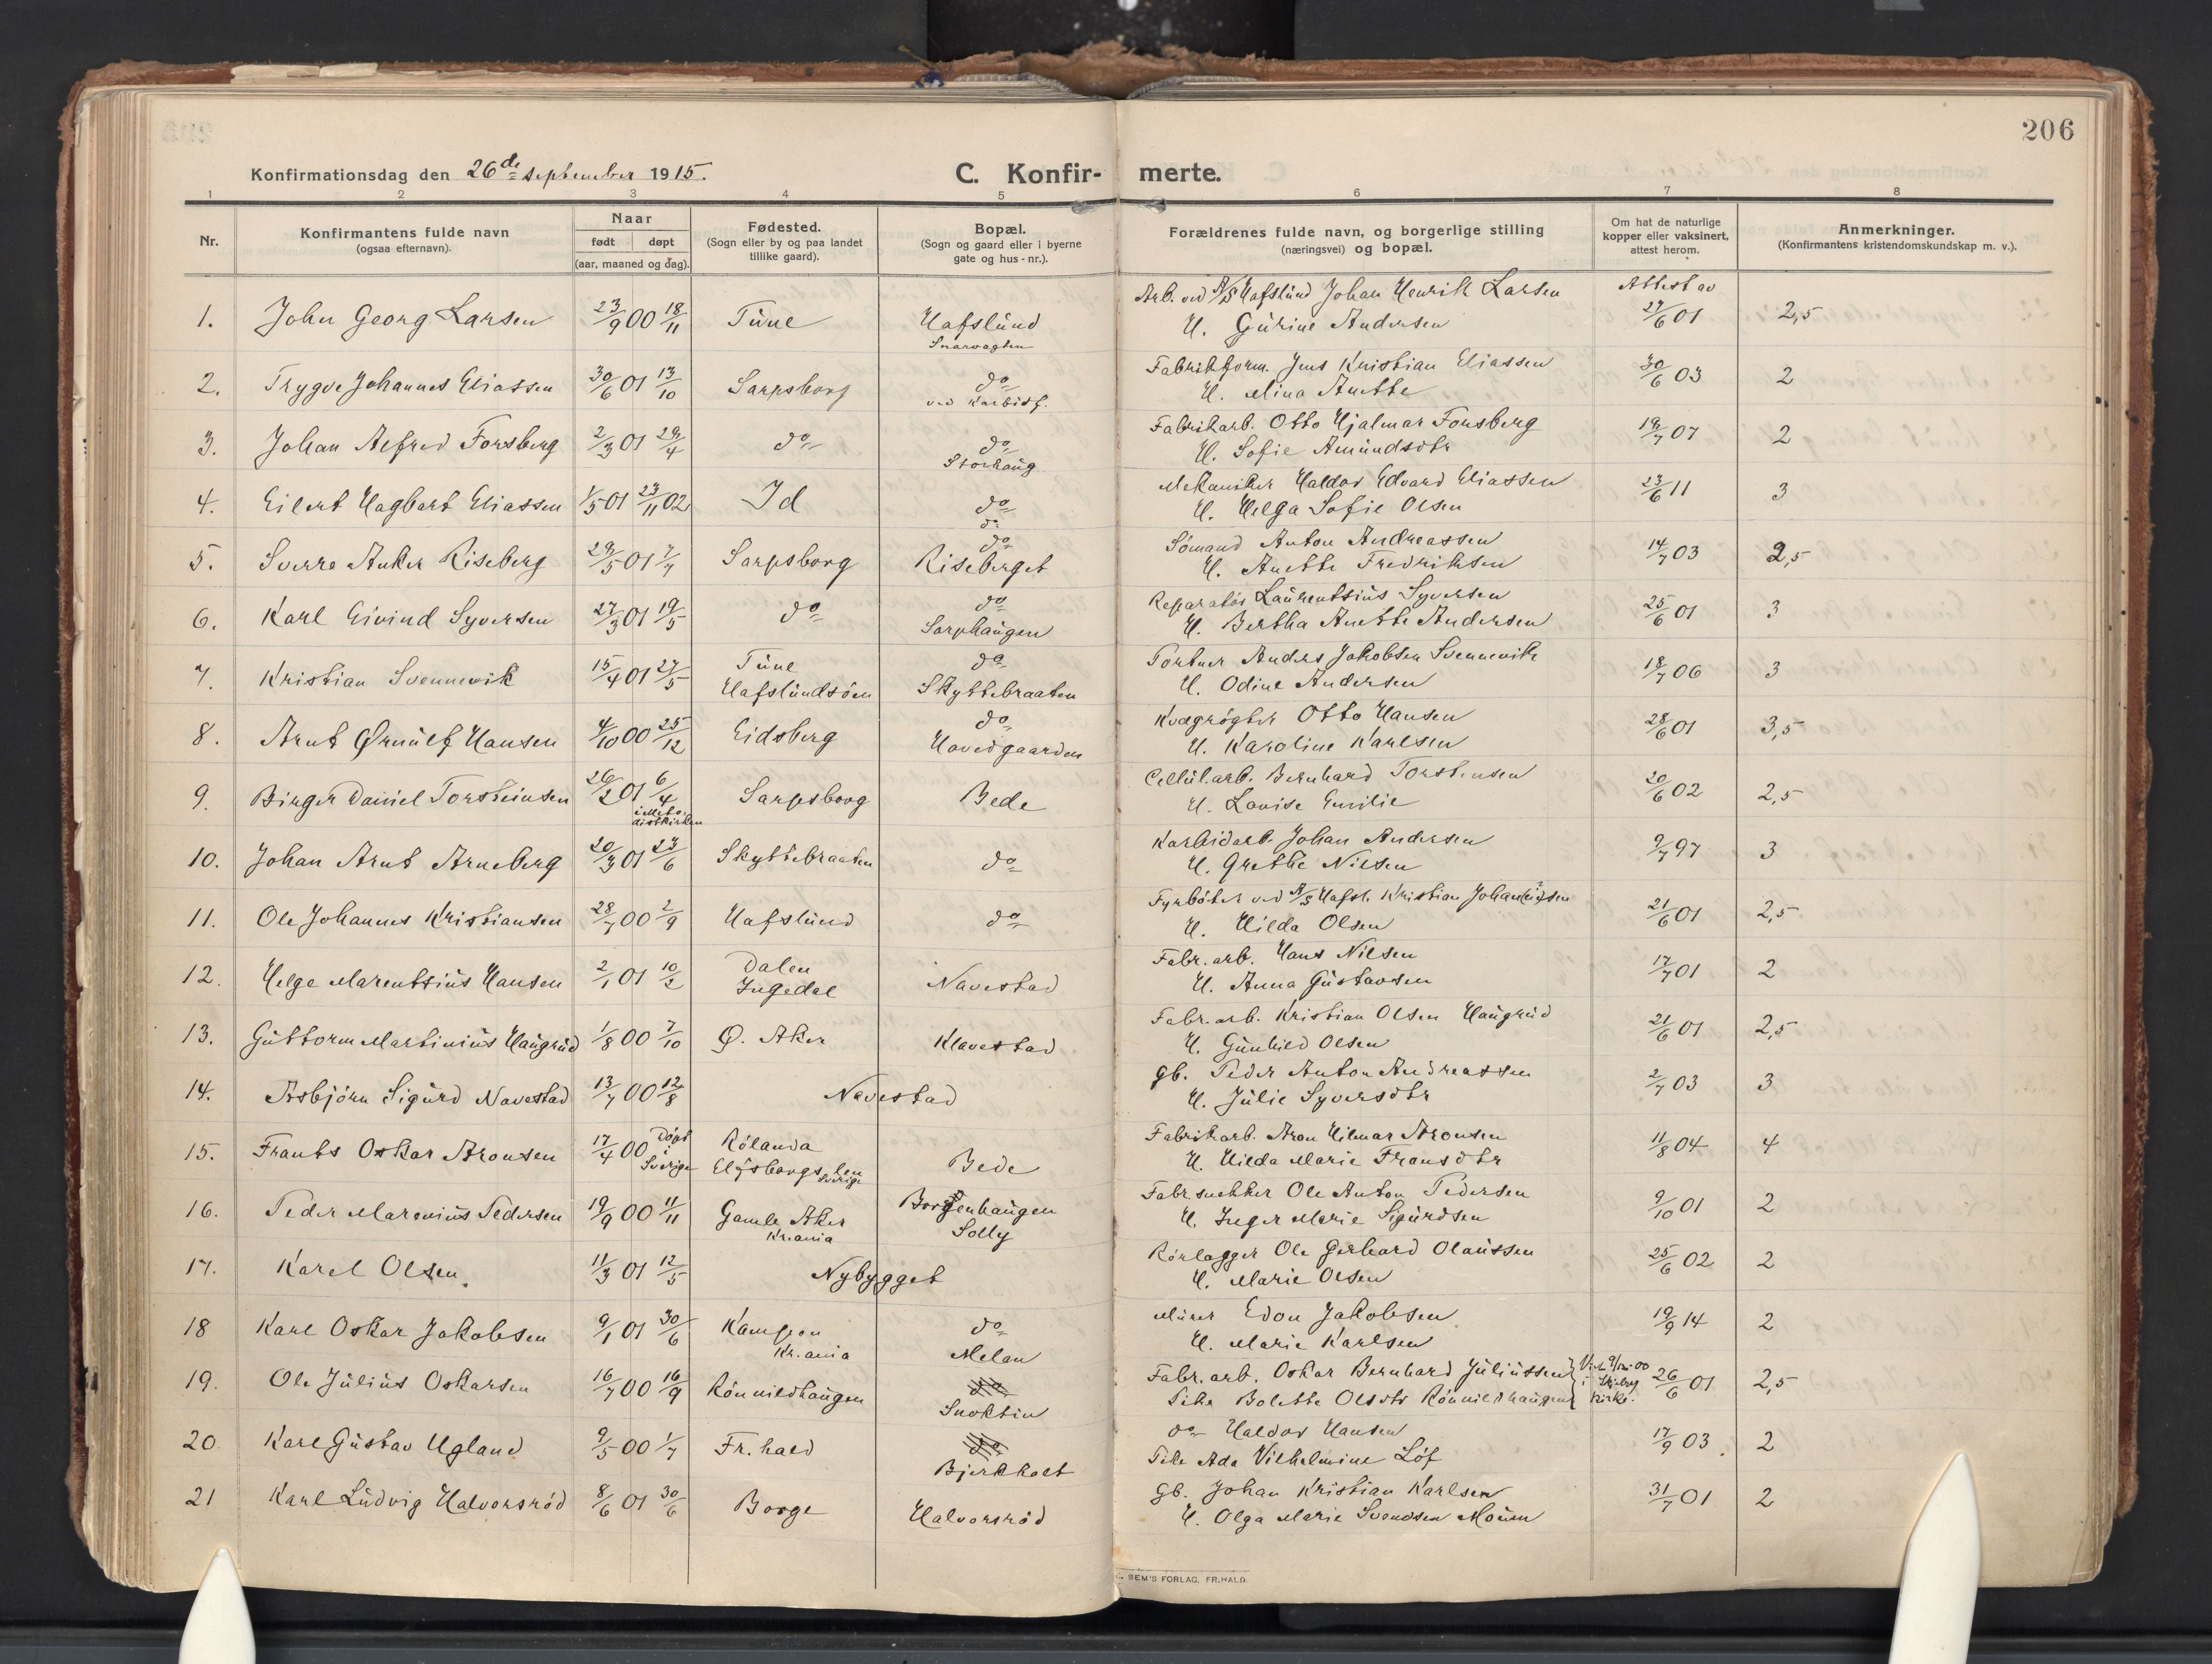 206
Konfirmationsdag den 26de september 1915.
C. Konfir-
merte.
1 2 3 4 5 6 7 8
Nr.
Konfirmantens fulde navn
(ogsaa efternavn).
Naar
født døpt
(aar, maaned og dag).
Fødested.
(Sogn eller by og paa landet
tillike gaard).
Bopæl.
(Sogn og gaard eller i byerne
gate og hus-nr.).
Forældrenes fulde navn, og borgerlige stilling
(næringsvei) og bopæl.
Om hat de naturlige
kopper eller vaksinert,
attest herom.
Anmerkninger.
(Konfirmantens kristendomskundskap m. v.).
Arb. ved A/S Hafslund Johan Henrik Larsen Attest av
1. John Georg Larsen 23/9 00 18/11 Tune Hafslund H. Gurine Andersen 27/6 01 2,5
Snarvagten
2. Trygve Johannes Eliassen 30/6 01 13/10 Sarpsborg do Fabrikform. Jens Kristian Eliassen 30/6 03 2
ved Karbidf. H. Mina Anette
3. Johan Alfred Forsberg 2/3 01 29/4 do do Fabrikarb. Otto Hjalmar Forsberg 19/7 07 2
Storhaug H. Sofie Amundsdtr
4. Eilert Hagbart Eliassen 1/5 01 23/11 02 Id do Mekaniker Haldor Edvard Eliassen 23/6 11 3
do H. Helga Sofie Olsen
5. Sverre Anker Riseberg 29/5 01 7/7 Sarpsborg do Sømand Anton Andreassen 14/7 03 2,5
Riseberget H. Anette Fredriksen
6. Karl Eivind Syversen 27/3 01 19/5 do do Reparatør Laurentsius Syversen 25/6 01 3
Sarphaugen H. Bertha Anette Andersen
7. Kristian Svennevik 15/4 01 27/5 Tune do Portner Anders Jakobsen Svennevik 18/7 06 3
Hafslundsøen Skyttebraaten H. Odine Andersen
8. Arnt Ørnulf Hansen 4/10 00 25/12 Eidsberg do Kvægrøgter Otto Hansen 28/6 01 3,5
Hovedgaarden H. Karoline Karlsen
9. Birger Daniel Torsteinsen 26/2 01 6/4 Sarpsborg Bede Cellul.arb. Bernhard Torstensen 20/6 02 2,5
i Meto-
distkirken H. Lovise Emilie
10. Johan Arnt Arneberg 20/3 01 23/6 Skyttebraaten do Karbidarb. Johan Andersen 9/7 97 3
H. Grethe Nilsen
11. Ole Johannes Kristiansen 28/7 00 2/9 Hafslund do Fyrbøter ved A/S Hafsl. Kristian Johan(ne)sen 21/6 01 2,5
H. Hilda Olsen
12. Helge Marentsius Hansen 2/1 01 10/2 Dalen Navestad Fabr. arb. Hans Nilsen 17/7 01 2
Ingedal H. Anna Gustavsen
13. Guttorm Martinius Haugrud 1/8 00 7/10 Ø. Aker Klavestad Fabr. arb. Kristian Olsen Haugrud 21/6 01 2,5
H. Gunhild Olsen
14. Asbjørn Sigurd Navestad 13/7 00 12/8 Navestad gb. Peder Anton Andreassen 2/7 03 3
H. Julie Syversdtr
15. Frants Oskar Aronsen 17/4 00 Døpt i Sverige Rølanda Bede Fabrikarb. Aron Hilmar Aronsen 11/8 04 4
Elfsborgs len Sverige H. Hilda Marie Fransdtr
16. Peder Marenius Pedersen 19/9 00 11/11 Gamle Aker Borgenhaugen Fabr snekker Ole Anton Pedersen 9/10 01 2
Kr.ania Solly H. Inger Marie Sigurdsen
17. Karel Olsen. 11/3 01 12/5 Nybygget Rørlægger Ole Gerhard Olaussen 25/6 02 2
H. Marie Olsen
18 Karl Oskar Jakobsen 9/1 01 30/6 Kampen do Murer Edon Jakobsen 19/9 14 2
Kr.ania Melan H. Marie Karlsen
19. Ole Julius Oskarsen 16/7 00 16/9 Rønnildhaugen do Fabr. arb. Oskar Bernhard Juliussen 26/6 01 2,5
Snoktin Pike Bolette Olsdtr Rønnildhaugen kirke.
20. Karl Gustav Ugland 9/5 00 1/7 Fr.hald do do Haldor Hansen 17/9 03 2
Bjerkholt Pike Ada Vilhelmine Løf
21 Karl Ludvig Halvorsrød 8/6 01 30/6 Borge Halvorsrød gb. Johan Kristian Karlsen 31/7 01 2
H. Olga Marie Svendsen Mouen
SEM'S FORLAG. FR.HALD